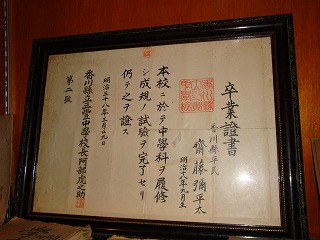 卒業證書
香川縣平民
齋藤彌平太
明治十八年九月生
本校ニ於テ中學科ヲ履修
シ成規ノ試驗ヲ完了セリ
仍テ之ヲ證ス
明治三十八年三月二十九日
香川縣立三豐中學校長阿部虎之助
第二號